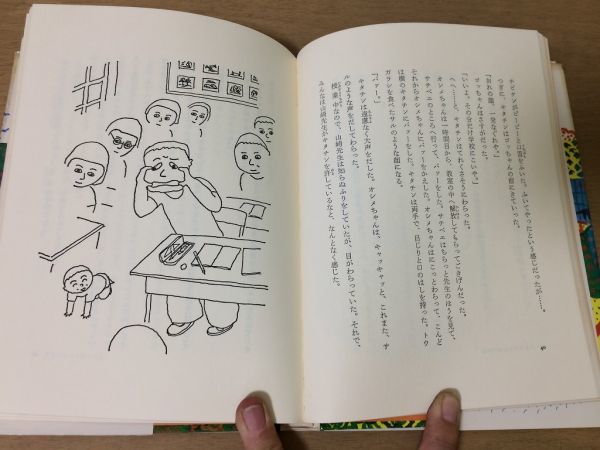 チビケンがピーピーと口笛をふいた。ふいてやったという感じだったが……。
つぎに、キタチンはゴッちゃんの前にきていった。
「おれの顔、一発なぐれや。」
ゴッちゃんはさすがだった。
「いいよ。その分だけ学校にこいや。」
へへ……と、キタチンはてれくさそうにわらった。
オシメちゃんは一時間目から、教室の中へ解放してもらってごきげんだった。
サチベエのところへ行って、バァーをした。サチベエはちらっと先生のほうを見て、
それからオシメちゃんにバァーをかえした。オシメちゃんはにこっとわらって、こんど
は横のキタチンにバァーをした。キタチンは両手で、目じりと口のはしを持った。トウ
ガラシを食べたサルのような顔になる。
「バァー。」
キタチンは遠慮なく大声をだした。オシメちゃんは、キャッキャッと、これまた、サ
ルのような声をだしてわらった。
授業中なので、山崎先生は知らぬふりをしていたが、目がわらっていた。それで、
みんなは山崎先生がキタチンを許しているなと、なんとなく感じた。